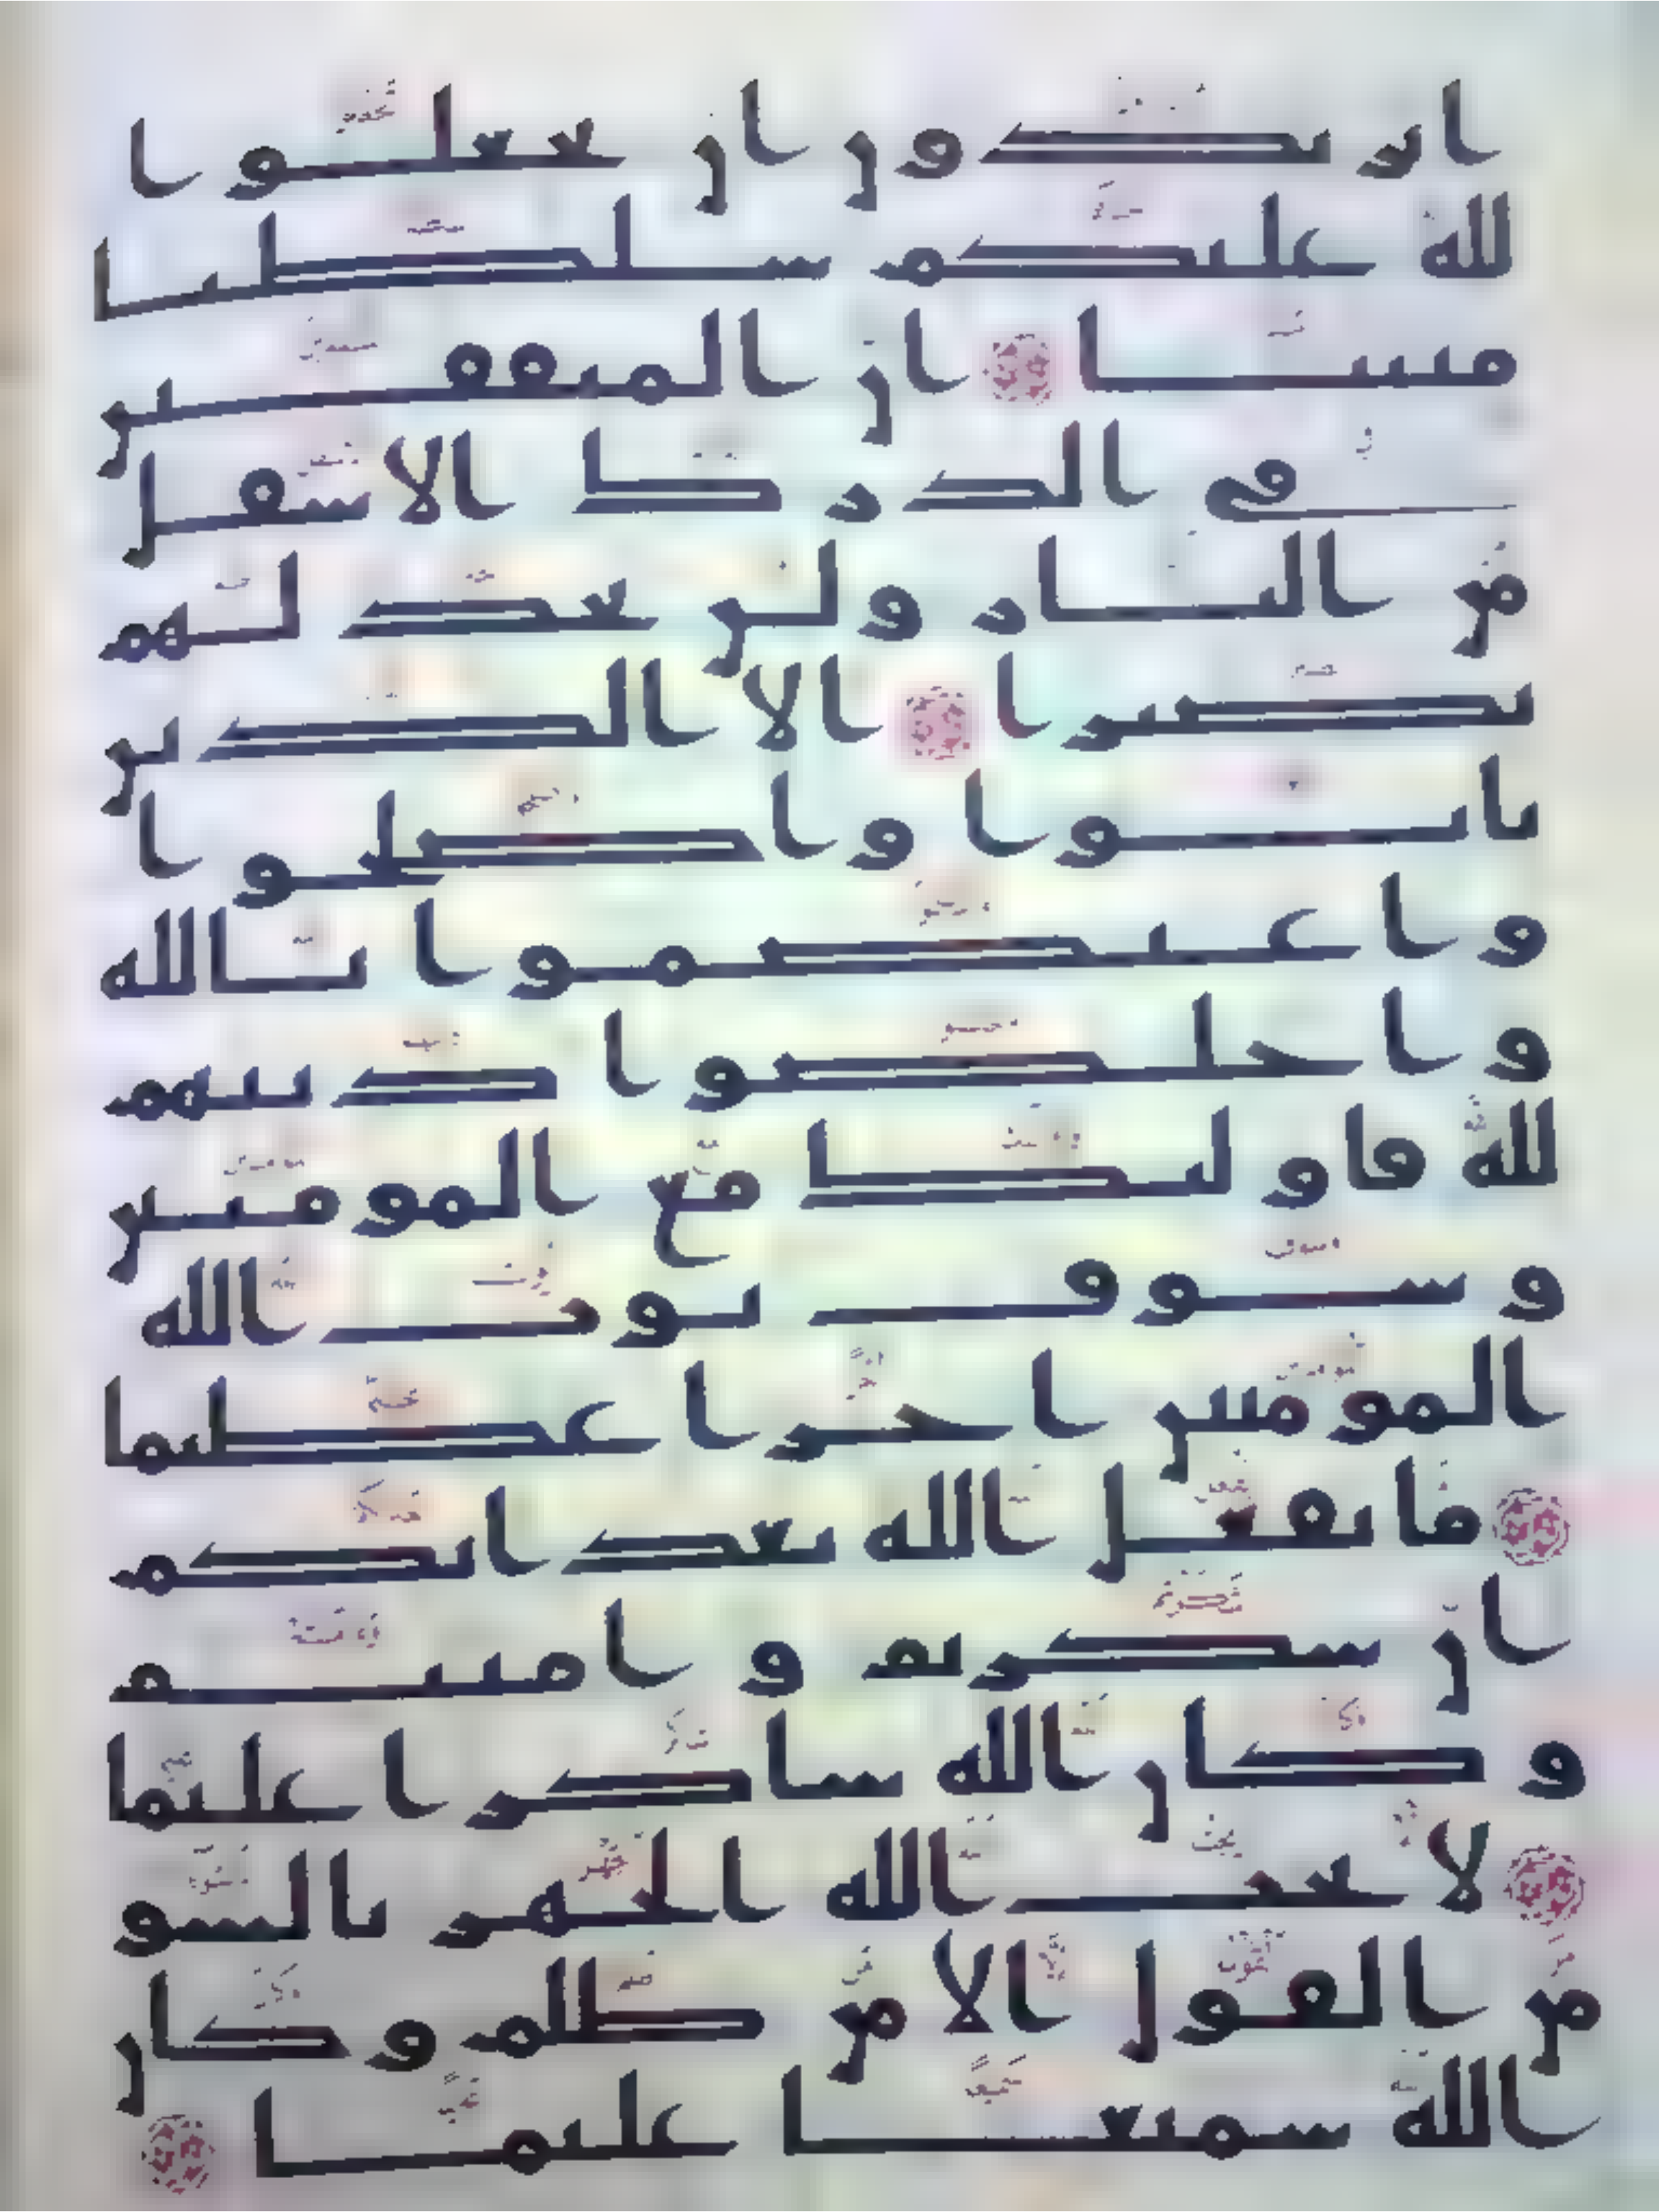 اتريدون ان تجعلوا
لله عليكم سلطنا
مبينا ان المنفقين
في الدرك الاسفل
من النار ولن تجد لهم
نصيرا الا الذين
تابوا واصلحوا
واعتصموا بالله
واخلصوا دينهم
لله فاولئك مع المومنين
وسوف يوت الله
المومنين اجرا عظيما
ما يفعل الله بعذابكم
ان شكرتم وامنتم
وكان الله شاكرا عليما
لا يحب الله الجهر بالسو
من القول الا من ظلم وكان
الله سميعا عليما